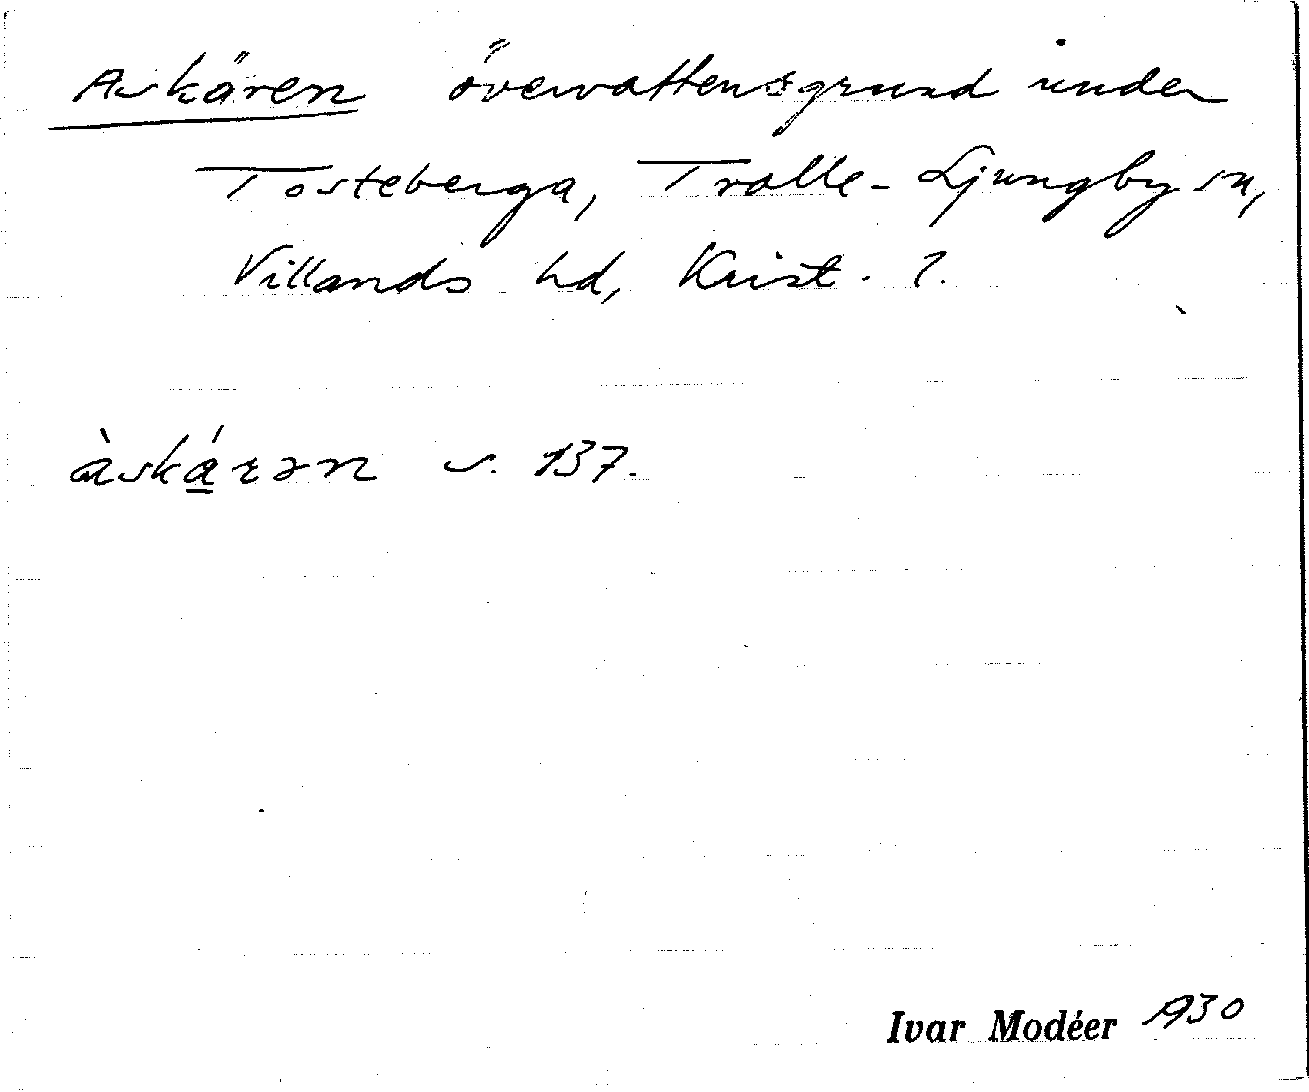 Askären övervattensgrund under
Tosteberga, Trolle-Ljungby sn,
Villands hd, Krist. l.
àská̱rən s. 137.
Ivar Modéer 1930